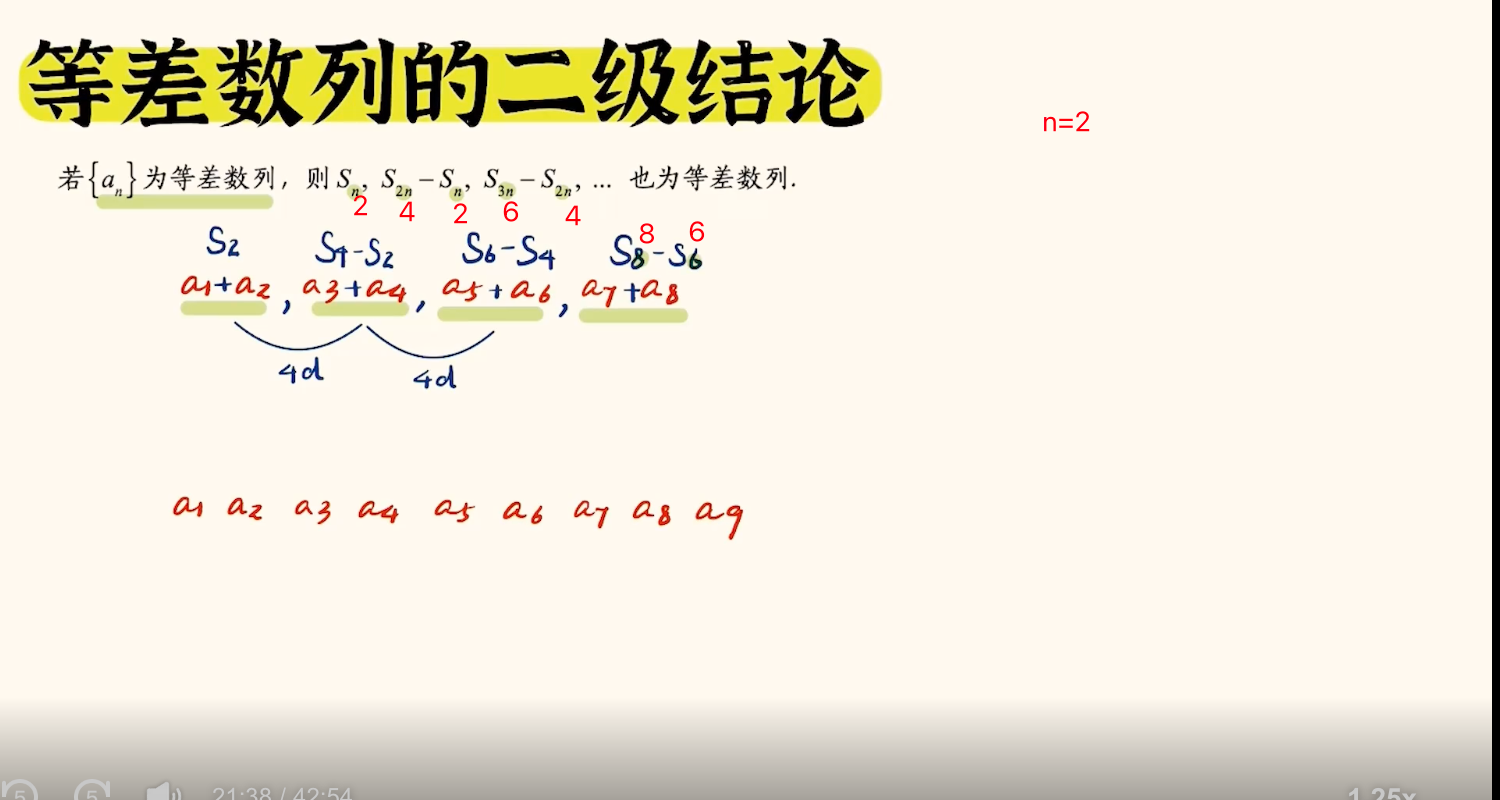 等差数列的二级结论
n=2
若{aₙ}为等差数列，则 Sₙ, S₂ₙ－Sₙ, S₃ₙ－S₂ₙ, … 也为等差数列.
2 4 2 6 4
8 6
S₂ S₄-S₂ S₆-S₄ S₈-S₆
a₁+a₂ , a₃+a₄ , a₅+a₆ , a₇+a₈
4d 4d
a₁ a₂ a₃ a₄ a₅ a₆ a₇ a₈ a₉
5 5 21:38 / 42:54 1.25x